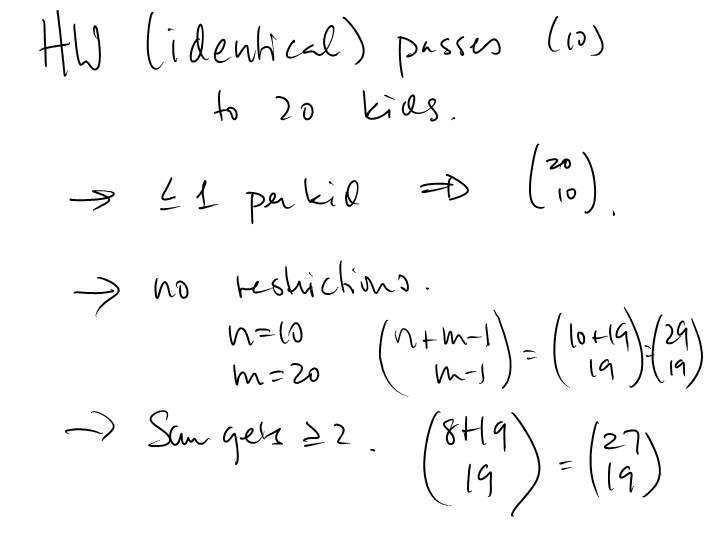 HW (identical) passes (10)
to 20 kids.
→ ≤ 1 per kid ⇒ (20 10).
→ no restrictions.
n=10 (n+m-1 m-1) = (10+19 19) = (29 19)
m=20
→ Sam gets ≥ 2. (8+19 19) = (27 19)